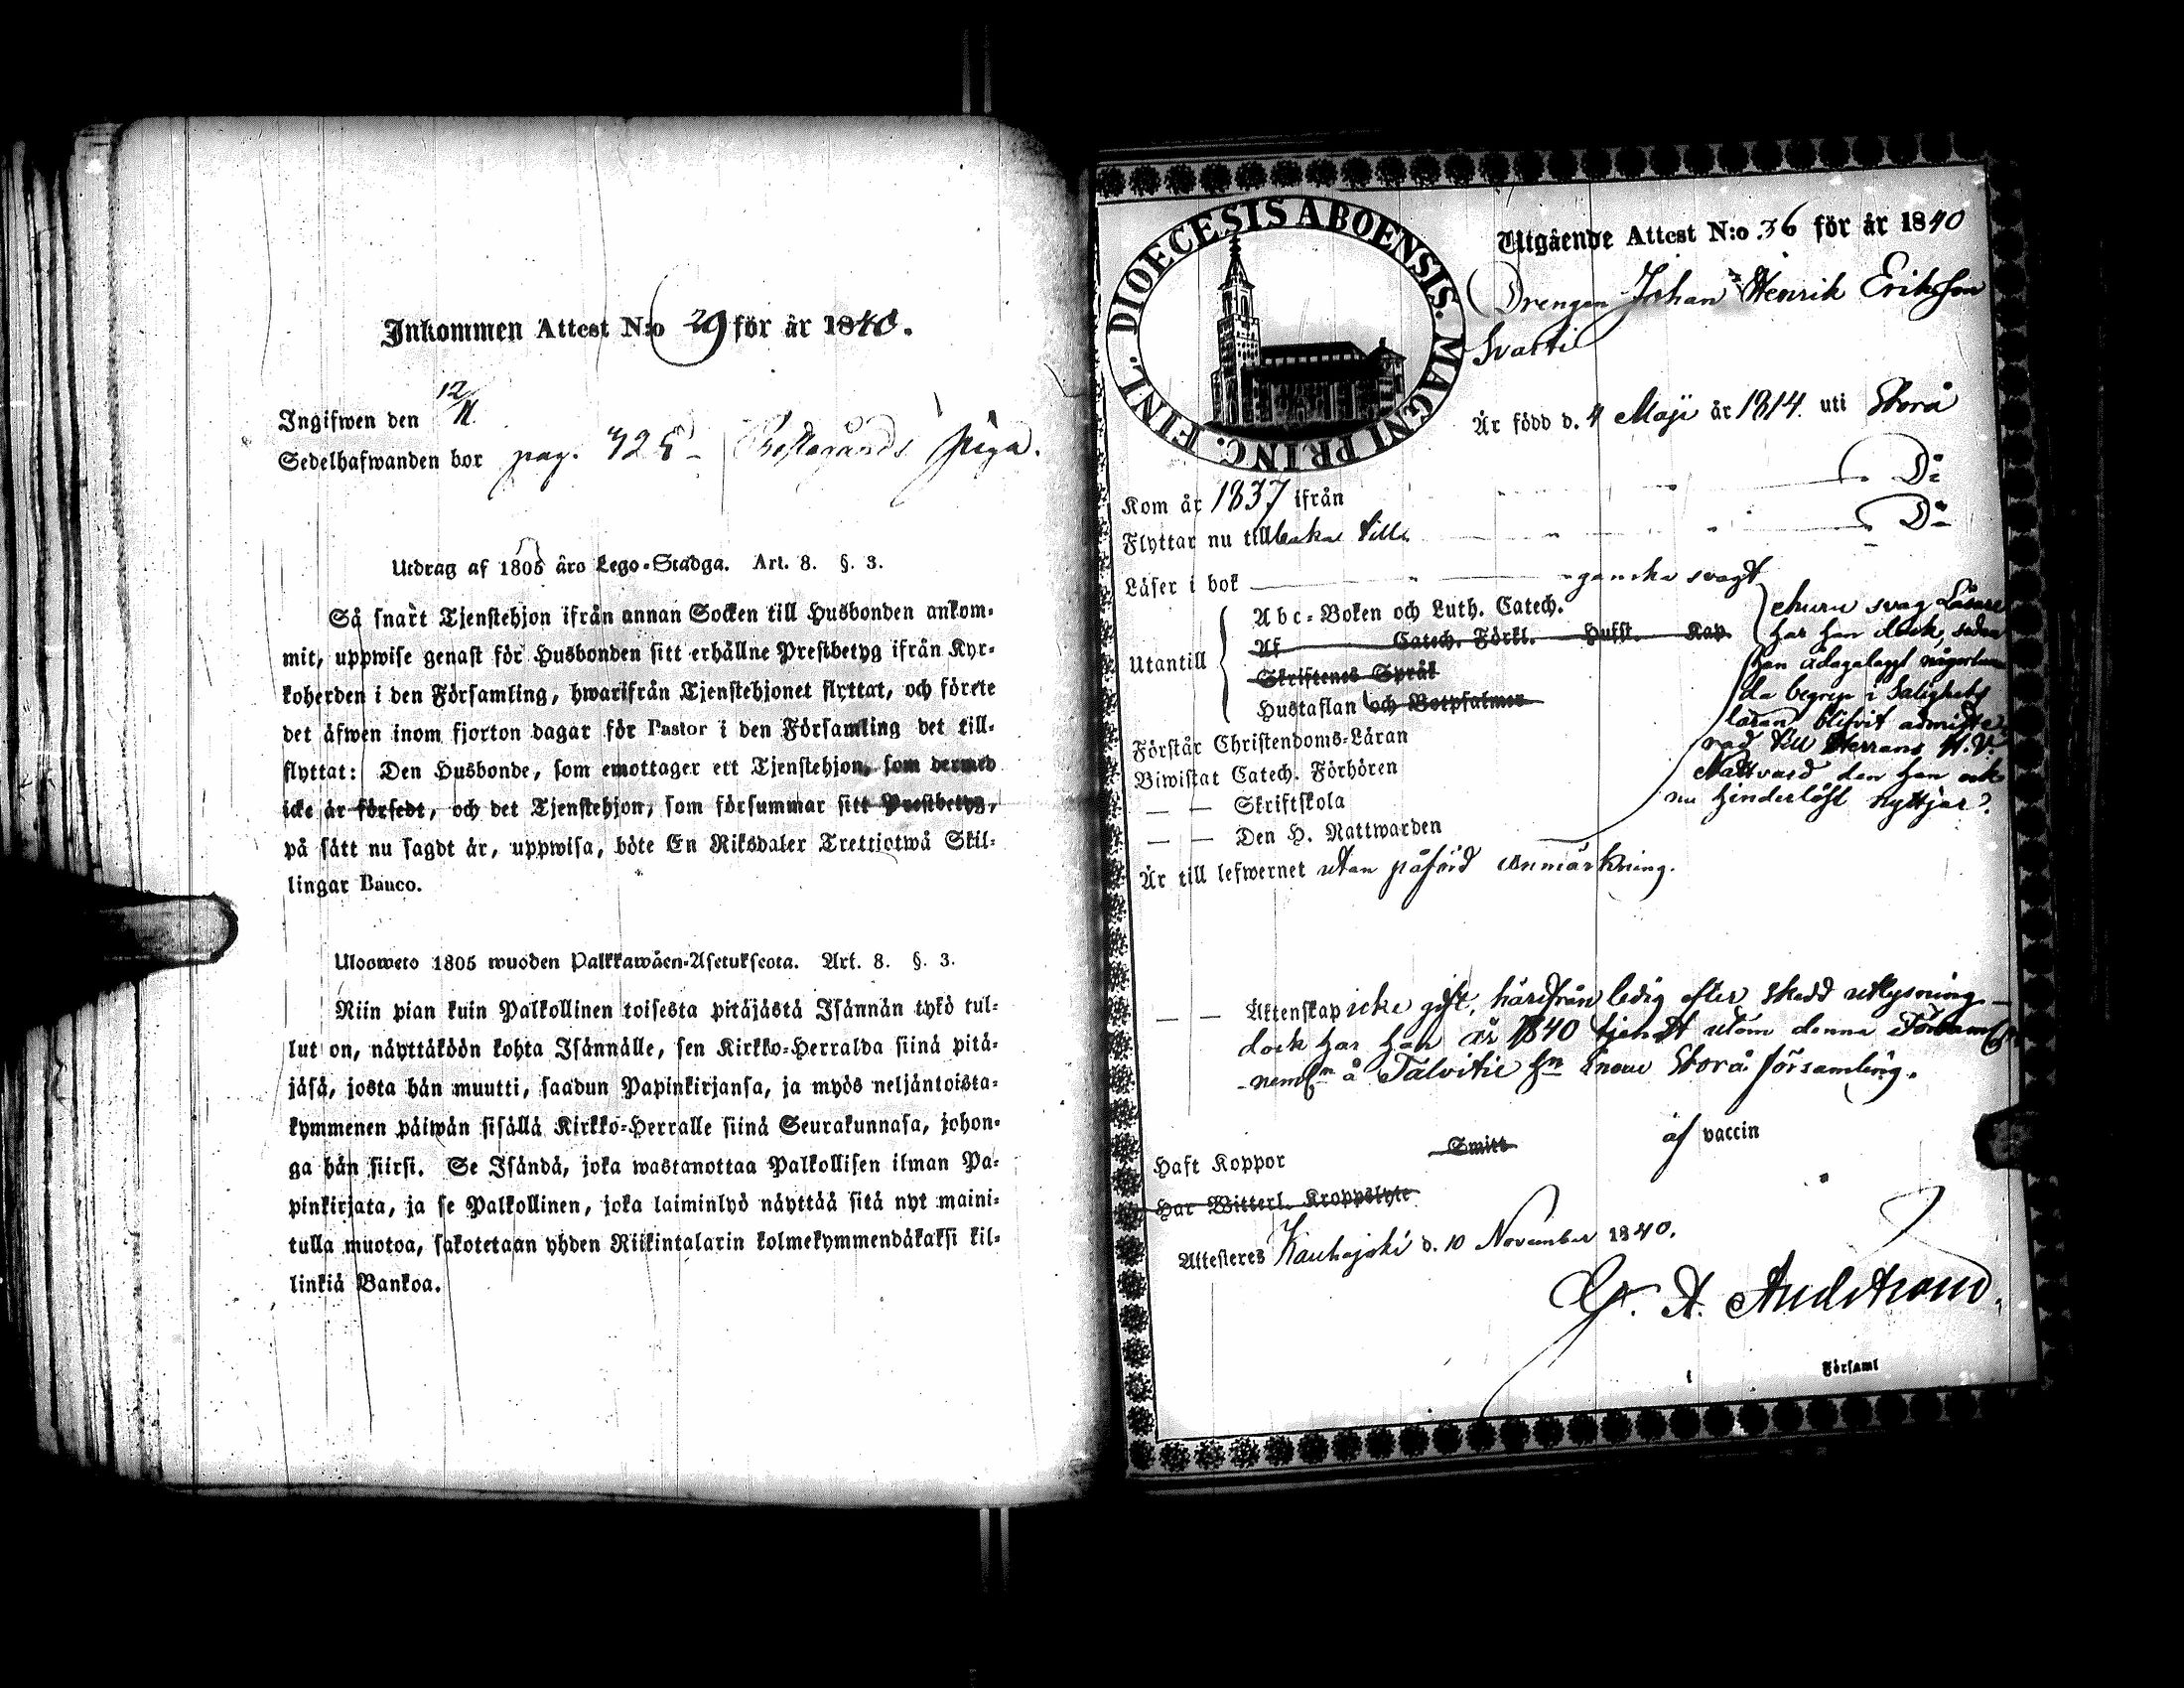 Inkommen Attest N:o 29 för år 1840.
Ingifwen den 12/11.
Sedelhafwanden bor pag. 325 piga.
Utdrag af 1805 års Lego-Stadga. Art. 8. §. 3.
Så snart Tjenstehjon ifrån annan Socken till Husbonden ankom-
mit, uppwise genast för Husbonden sitt erhållne Prestbetyg ifrån Kyr-
koherden i den Församling, hwarifrån Tjenstehjonet flyttat, och förete
det äfwen inom fjorton dagar för Pastor i den Församling det till-
flyttat: Den Husbonde, som emottager ett Tjenstehjon, som dermed
icke är försedt, och det Tjenstehjon, som försummar sitt Prestbetyg,
på sätt nu sagdt är, uppwisa, böte En Riksdaler Trettiotwå Skil-
lingar Banco.
Ulosweto 1805 wuoden Palkkawäen-Asetuksesta. Art. 8. §. 3.
Niin pian kuin Palkollinen toisesta pitäjästä Isännän tykö tul-
lut on, näyttäköön kohta Isännälle, sen Kirkko-Herralda siinä pitä-
jäsä, josta hän muutti, saadun Papinkirjansa, ja myös neljäntoista-
kymmenen päiwän sisällä Kirkko-Herralle siinä Seurakunnasa, johon-
ga hän siirsi. Se Isändä, joka wastanottaa Palkollisen ilman Pa-
pinkirjata, ja se Palkollinen, joka laiminlyö näyttää sitä nyt maini-
tulla muotoa, sakotetaan yhden Riikintalarin kolmekymmendäkaksi kil-
linkiä Bankoa.
DIOECESIS ABOENSIS. MAGNI PRINC. FINL.
Utgående Attest N:o 36 för år 1840
Drengen Johan Henrik Eriksson
Svartti
Är född d. 4 Maji år 1814. uti Storå
Kom år 1837 ifrån D:o
Flyttar nu tillbaka till D:o
Läser i bok ganska svagt
Utantill
Abc-Boken och Luth. Catech.
Af Catech. Förkl. Hufst. Kap.
Skriftenes Språk
Hustaflan och Botpsalmer
ehuru svag Läsare
har han dock, sedan
han ådagalagt någorlun
da begrep i Salighets
läran blifvit admitte
rad till Herrans H. V.
Nattvard den han ock
nu hinderlöst nyttjar.
Förstår Christendoms-Läran
Biwistat Catech. Förhören
— — Skriftskola
— — Den H. Nattwarden
Är till lefwernet utan påförd anmärkning.
— — Äktenskap icke gift, härifrån ledig efter skedd utlysning —
dock har han år 1840 tjenst utom denna Församl
nemln å Talvitie hn inom Storå församling.
Haft Koppor Smitt af vaccin
Har Witterl. Kroppslyte
Attesteres Kauhajoki d. 10 November 1840.
Församl